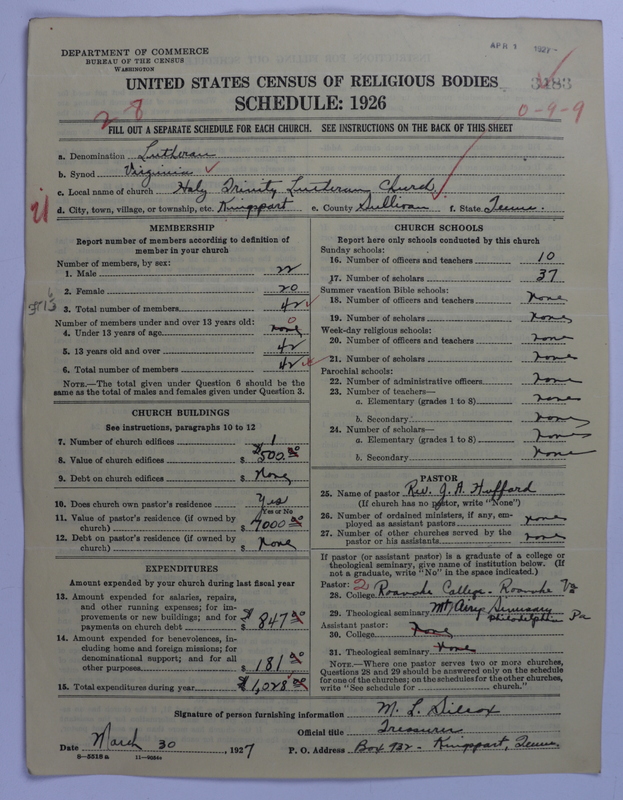 APR 1 1927
DEPARTMENT OF COMMERCE
BUREAU OF THE CENSUS
WASHINGTON
UNITED STATES CENSUS OF RELIGIOUS BODIES
SCHEDULE: 1926
3483
28
0-9-9
FILL OUT A SEPARATE SCHEDULE FOR EACH CHURCH. SEE INSTRUCTIONS ON THE BACK OF THIS SHEET
a. Denomination Lutheran
b. Synod Virginia
c. Local name of church Holy Trinity Lutheran Church
d. City, town, village, or township, etc. Kingsport e. County Sullivan f. State Tenn.
MEMBERSHIP
Report number of members according to definition of
member in your church
Number of members, by sex:
1. Male 22
2. Female 20
3. Total number of members 42
Number of members under and over 13 years old: 0
4. Under 13 years of age none
5. 13 years old and over 42
6. Total number of members 42
NOTE.—The total given under Question 6 should be
same as the total of males and females given under Question 3.
CHURCH BUILDINGS
See instructions, paragraphs 10 to 12
7. Number of church edifices 1
8. Value of church edifices $ 500.00
9. Debt on church edifices $ None
10. Does church own pastor's residence Yes
Yes or No
11. Value of pastor's residence (if owned by
church) $ 7000 00
12. Debt on pastor's residence (if owned by
church) $ None
EXPENDITURES
Amount expended by your church during last fiscal year
13. Amount expended for salaries, repairs,
and other running expenses; for im-
provements or new buildings; and for
payments on church debt $ 847 00
14. Amount expended for benevolences, in-
cluding home and foreign missions; for
denominational support; and for all
other purposes $ 181 00
15. Total expenditures during year $ 1,028 00
CHURCH SCHOOLS
Report here only schools conducted by this church
Sunday schools:
16. Number of officers and teachers 10
17. Number of scholars 37
Summer vacation Bible schools:
18. Number of officers and teachers None
19. Number of scholars None
Week-day religious schools:
20. Number of officers and teachers none
21. Number of scholars none
Parochial schools:
22. Number of administrative officers none
23. Number of teachers—
a. Elementary (grades 1 to 8) none
b. Secondary none
24. Number of scholars—
a. Elementary (grades 1 to 8) none
b. Secondary none
PASTOR
25. Name of pastor Rev. J. A. Huffard
(If church has no pastor, write "None")
26. Number of ordained ministers, if any, em-
ployed as assistant pastors none
27. Number of other churches served by the
pastor or his assistants none
If pastor (or assistant pastor) is a graduate of a college or
theological seminary, give name of institution below. (If
not a graduate, write "No" in the space indicated.)
Pastor: 2
28. College Roanoke College - Roanoke Va
29. Theological seminary Mt Airy Seminary
Philadelphia Pa
Assistant pastor:
30. College None
31. Theological seminary None
NOTE.—Where one pastor serves two or more churches,
Questions 28 and 29 should be answered only on the schedule
for one of the churches; on the schedules for the other churches,
write "See schedule for ______ church."
Signature of person furnishing information M. L. Silcox
Official title Treasurer
Date March 30, 1927 P. O. Address Box 732 - Kingsport, Tenn.
8-5518a 11-9054